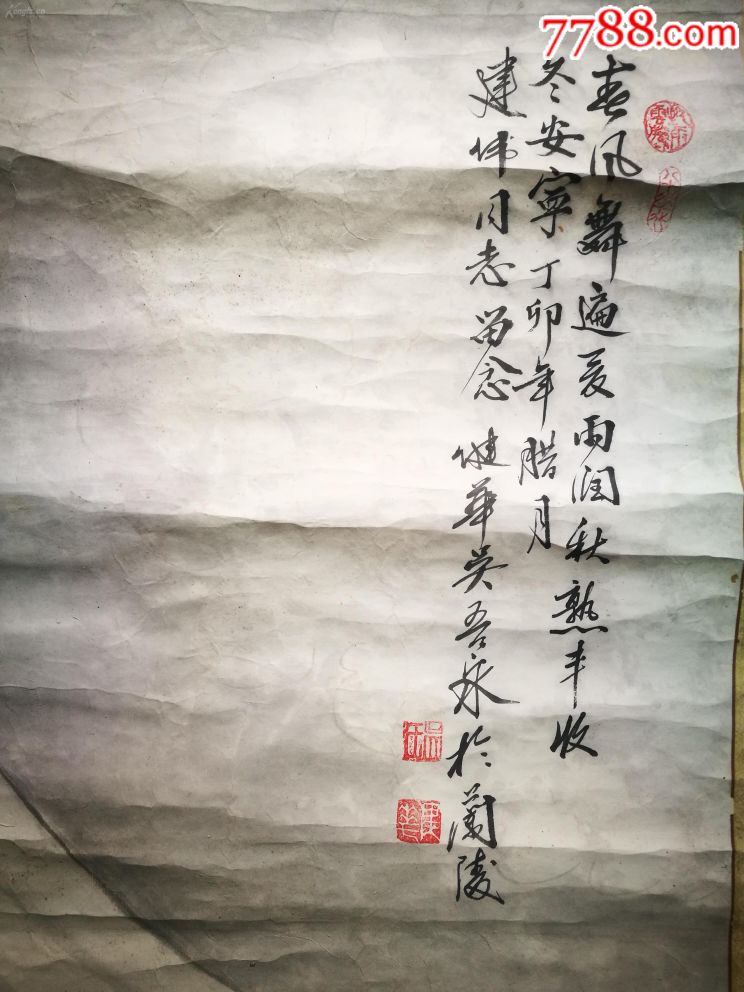 7788.com
春风舞遍夏雨润秋熟丰收
冬安寧丁卯年腊月
建伟同志留念 健華吴吾泉於蘭陵